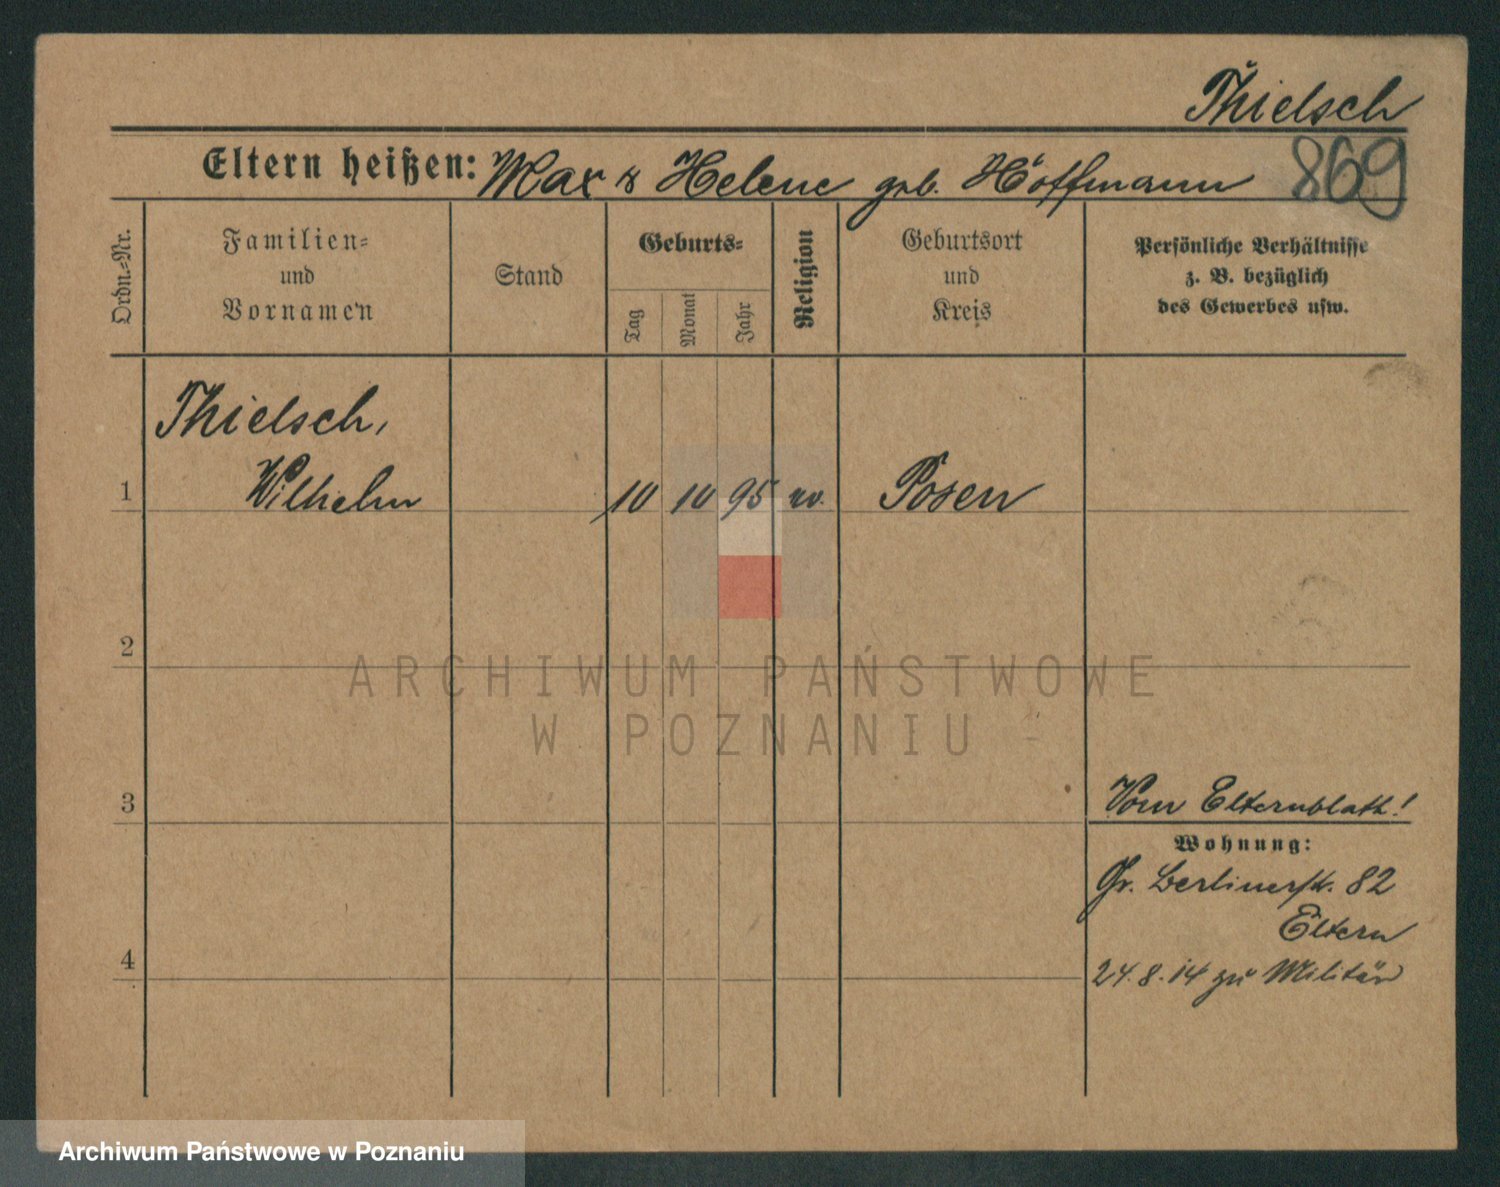 Thielsch
Eltern heißen: Max & Helene geb. Höffmann 869
Ordn.-Nr.
Familien-
und
Vornamen
Stand
Geburts-
Tag
Monat
Jahr
Religion
Geburtsort
und
Kreis
Persönliche Verhältnisse
z. B. bezüglich
des Gewerbes usw.
Thielsch,
1 Wilhelm 10 10 95 ev. Posen
2
3
4
Vom Elternblatt!
Wohnung:
Gr. Berlinerstr. 82
Eltern
24.8.14 zu Militär
ARCHIWUM PAŃSTWOWE
W POZNANIU
Archiwum Państwowe w Poznaniu